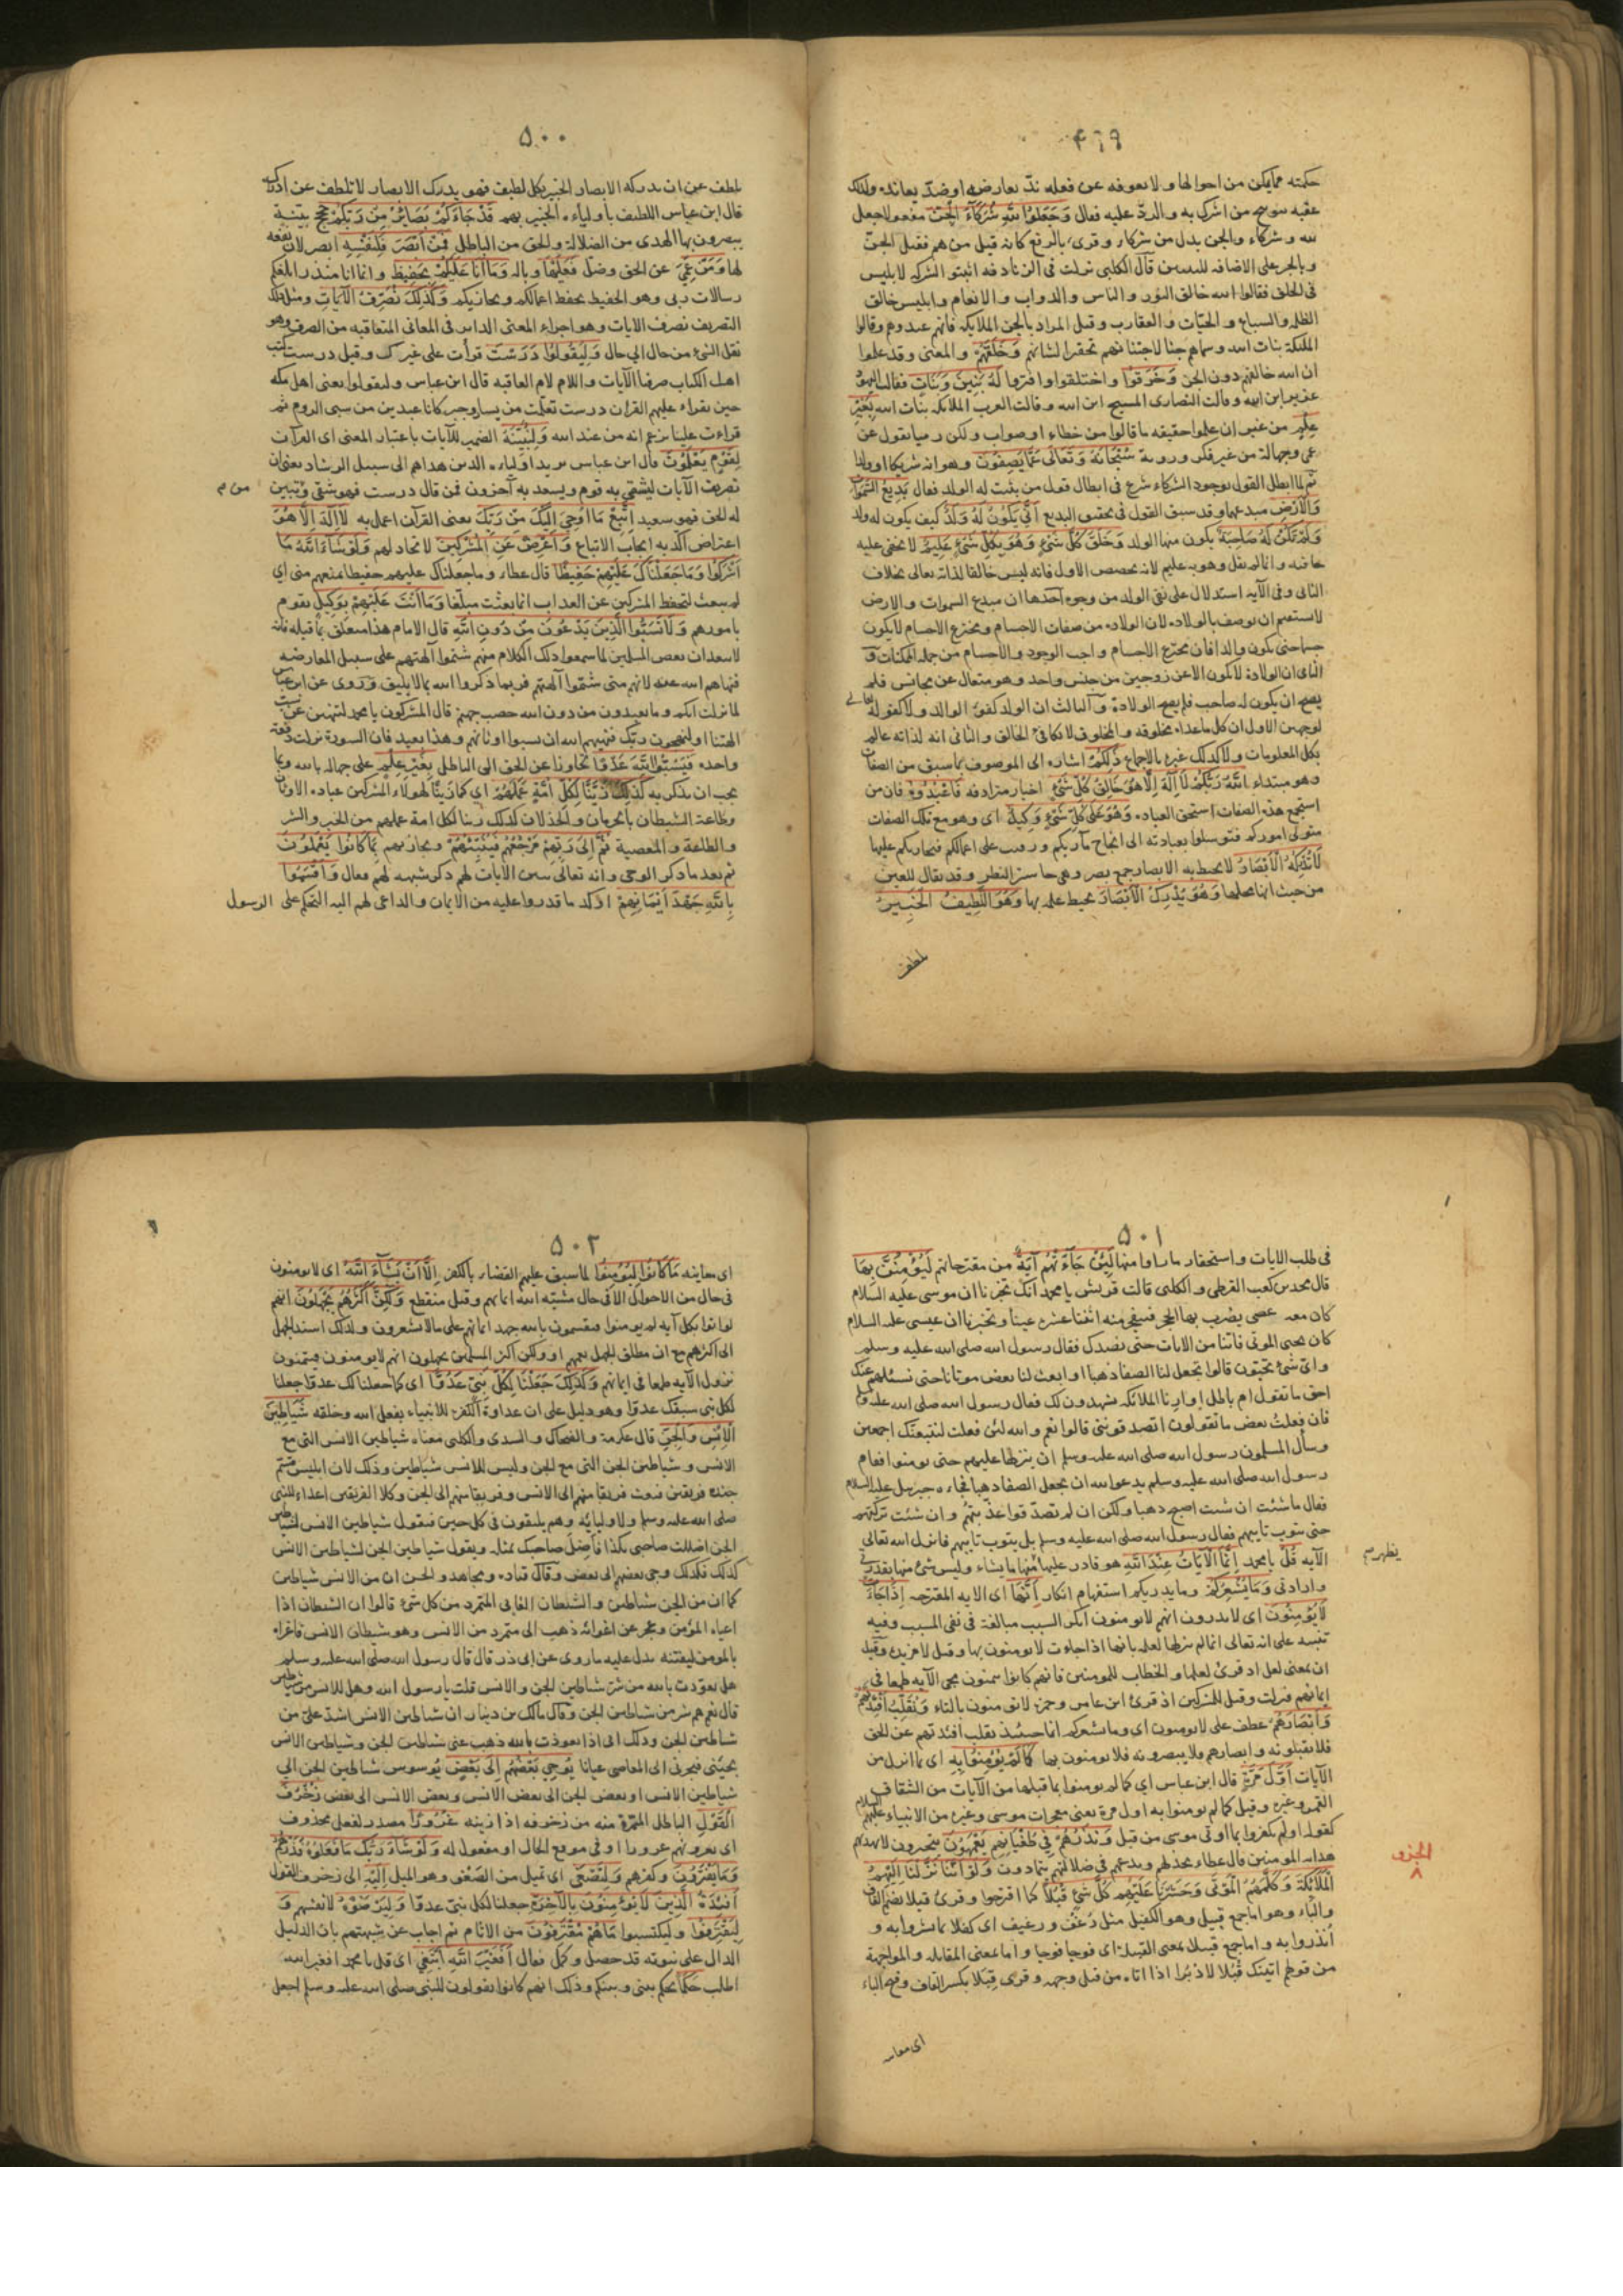 ٤٩٩
حكمته مما يمكن من احوالها ولا يعوقه عن فعله ندّ يعارضه او ضدّ يعانده ولذلك
عقبه بتوبيخ من اشرك به والردّ عليه فقال وَجَعَلُوا لِلّٰهِ شُرَكَاءَ الْجِنَّ مفعولا جعل
لله وشركاء والجن بدل من شركاء وقرئ بالرفع كانه قيل من هم فقيل الجنّ
وبالجر على الاضافة للتبيين قال الكلبي نزلت في الزنادقه اثبتوا الشركة لابليس
في الخلق فقالوا الله خالق النور والناس والدواب والانعام وابليس خالق
الظلمة والسباع والحيّات والعقارب وقيل المراد بالجن الملايكه فانهم عبدوهم وقالوا
الملئكة بنات الله وسماهم جنا لاجتنانهم تحقيرا لشانهم وَخَلَقَهُمْ والمعنى وقد علموا
ان الله خالقهم دون الجن وَخَرَقُوا واختلقوا وافتروا لَهُ بَنِينَ وَبَنَاتٍ فقالت اليهود
عزير ابن الله وقالت النصارى المسيح ابن الله وقالت العرب الملايكه بنات الله بِغَيْرِ
عِلْمٍ من غير ان علموا حقيقه ما قالوا من خطاء او صواب ولكن رميا بقول عن
عمى وجهالة من غير فكر وروية سُبْحَانَهُ وَتَعَالَى عَمَّا يَصِفُونَ وهو انه شريكا او ولدا
ثم لما ابطل القول بوجود الشركاء شرع في ابطال قول من يثبت له الولد فقال بَدِيعُ السَّمٰوَاتِ
وَالْأَرْضِ مبدعهما وقد سبق القول في تحقيق البديع أَنَّى يَكُونُ لَهُ وَلَدٌ كيف يكون له ولد
وَلَمْ تَكُنْ لَهُ صَاحِبَةٌ يكون منها الولد وَخَلَقَ كُلَّ شَيْءٍ وَهُوَ بِكُلِّ شَيْءٍ عَلِيمٌ لا تخفى عليه
خافيه وانما لم يقل وهو به عليم لانه تخصص الاول فانه ليس خالقا لذاته تعالى بخلاف
الثاني وفي الآيه استدلال على نفي الولد من وجوه احدها ان مبدع السموات والارض
لا يستقيم ان يوصف بالولاده لان الولاده من صفات الاجسام ومخترع الاجسام لا يكون
جسما حتى يكون والدا فان مخترع الاجسام واجب الوجود والاجسام من جمله الممكنات و
الثاني ان الولادة لا تكون الا عن زوجين من جنس واحد وهو متعال عن مجانس فلم
يصح ان يكون له صاحب فلم يصح الولادة والثالث ان الولد كفؤ الوالد ولا كفؤ له تعالى
لوجهين الاول ان كل ما عداه مخلوقه والمخلوق لا يكافئ الخالق والثاني انه لذاته عالم
بكل المعلومات ولا كذلك غيره بالاجماع ذٰلِكُمُ اشاره الى الموصوف بما سبق من الصفات
وهو مبتداء اللّٰهُ رَبُّكُمْ لَا إِلٰهَ إِلَّا هُوَ خَالِقُ كُلِّ شَيْءٍ اخبار مترادفه فَاعْبُدُوهُ فان من
استجمع هذه الصفات استحق العباده وَهُوَ عَلَى كُلِّ شَيْءٍ وَكِيلٌ اى وهو مع تلك الصفات
متولى اموركم فتوسلوا بعبادته الى انجاح مآربكم ورقيب على اعمالكم فيجازيكم عليها
لَا تُدْرِكُهُ الْأَبْصَارُ لا تحيط به الابصار جمع بصر وهي حاسة النظر وقد يقال للعين
من حيث انها محلها وَهُوَ يُدْرِكُ الْأَبْصَارَ يحيط علمه بها وَهُوَ اللَّطِيفُ الْخَبِيرُ
يلطف
٥٠٠
يلطف عن ان يدركه الابصار الخبير بكل لطيف فهو يدرك الابصار لا تلطف عن ادراكه
قال ابن عباس اللطيف باوليائه الخبير بهم قَدْ جَاءَكُمْ بَصَائِرُ مِنْ رَبِّكُمْ حجج بيّنة
يبصرون بها الهدى من الضلالة والحق من الباطل فَمَنْ أَبْصَرَ فَلِنَفْسِهِ ابصر لان نفعه
لها وَمَنْ عَمِيَ عن الحق وضلّ فَعَلَيْهَا وباله وَمَا أَنَا عَلَيْكُمْ بِحَفِيظٍ وانما انا منذر ابلغكم
رسالات ربى وهو الحفيظ يحفظ اعمالكم ويجازيكم وَكَذٰلِكَ نُصَرِّفُ الْآيَاتِ ومثل ذلك
التصريف نصرف الايات وهو اجراء المعنى الدائر في المعاني المتعاقبه من الصرف وهو
نقل الشئ من حال الى حال وَلِيَقُولُوا دَرَسْتَ قرأت على غيرك وقيل درست كتب
اهل الكتاب صرفنا الآيات واللام لام العاقبه قال ابن عباس وليقولوا يعنى اهل مكه
حين تقراء عليهم القران درست تعلّمت من يسار وجبر كانا عبدين من سبى الروم ثم
قراءت علينا تزعم انه من عند الله وَلِنُبَيِّنَهُ الضمير للآيات باعتبار المعنى اى القرآن
لِقَوْمٍ يَعْلَمُونَ قال ابن عباس يريد اولياءه الذين هداهم الى سبيل الرشاد يعنى ان
تصريف الآيات ليشقى به قوم ويسعد به آخرون فمن قال درست فهو شقى وتبين
من م
له الحق فهو سعيد اِتَّبِعْ مَا أُوحِيَ إِلَيْكَ مِنْ رَبِّكَ يعنى القرآن اعمل به لَا إِلٰهَ إِلَّا هُوَ
اعتراض اكّد به ايجاب الاتباع وَأَعْرِضْ عَنِ الْمُشْرِكِينَ لا تجادلهم وَلَوْ شَاءَ اللّٰهُ مَا
أَشْرَكُوا وَمَا جَعَلْنَاكَ عَلَيْهِمْ حَفِيظًا قال عطاء وما جعلناك عليهم حفيظا تمنعهم منى اي
لم تبعث لتحفظ المشركين عن العذاب انما بعثت مبلّغا وَمَا أَنْتَ عَلَيْهِمْ بِوَكِيلٍ تقوم
بامورهم وَلَا تَسُبُّوا الَّذِينَ يَدْعُونَ مِنْ دُونِ اللّٰهِ قال الامام هذا متعلق بما قبله فانه
لا يبعد ان بعض المسلمين لما سمعوا ذلك الكلام منهم شتموا آلهتهم على سبيل المعارضه
فنهاهم الله عنه لانهم متى شتموا آلهتهم فربما ذكروا الله بما لا يليق وروى عن ابن عباس
لما نزلت انكم وما تعبدون من دون الله حصب جهنم قال المشركون يا محمد لتنتهين عن سبّ
الهتنا او لنهجون ربّك فنهيهم الله ان يسبوا اوثانهم وهذا بعيد فان السورة نزلت دفعة
واحده فَيَسُبُّوا اللّٰهَ عَدْوًا تجاوزا عن الحق الى الباطل بِغَيْرِ عِلْمٍ على جهالة بالله وبما
يجب ان يذكر به كَذٰلِكَ زَيَّنَّا لِكُلِّ أُمَّةٍ عَمَلَهُمْ اي كما زيّنّا لهولاء المشركين عباده الاوثان
وطاعة الشيطان بالحرمان والخذلان كذلك زينا لكل امة عملهم من الخير والشر
والطاعة والمعصية ثُمَّ إِلَى رَبِّهِمْ مَرْجِعُهُمْ فَيُنَبِّئُهُمْ ويجازيهم بِمَا كَانُوا يَعْمَلُونَ
ثم بعد ما ذكر الوحى وانه تعالى يبين الآيات لهم ذكر شبهه لهم فقال وَأَقْسَمُوا
بِاللّٰهِ جَهْدَ أَيْمَانِهِمْ اوكد ما قدروا عليه من الايمان والداعى لهم اليه التحكم على الرسول
٥٠١
في طلب الايات واستحقار ما راوا منها لَئِنْ جَاءَتْهُمْ آيَةٌ من مقترحاتهم لَيُؤْمِنُنَّ بِهَا
قال محمد بن كعب القرظى والكلبى قالت قريش يا محمد انك تخبرنا ان موسى عليه السلام
كان معه عصى يضرب بها الحجر فينفجر منه اثنتا عشره عينا وتخبرنا ان عيسى عليه السلام
كان يحيى الموتى فاتنا من الايات حتى نصدقك فقال رسول الله صلى الله عليه وسلم
واى شئ تحبّون قالوا تجعل لنا الصفا ذهبا او ابعث لنا بعض موتانا حتى نسئلهم عنك
احق ما تقول ام باطل او ارنا الملائكه يشهدون لك فقال رسول الله صلى الله عليه وسلم
فان فعلتُ بعض ما تقولون اتصدقوننى قالوا نعم والله لئن فعلت لنتبعنّك اجمعين
وسأل المسلمون رسول الله صلى الله عليه وسلم ان ينزلها عليهم حتى يومنوا فقام
رسول الله صلى الله عليه وسلم يدعو الله ان يجعل الصفا ذهبا فجاءه جبريل عليه السلام
فقال ما شئت ان شئت اصبح ذهبا ولكن ان لم يصدّقوا عذّبتهم وان شئت تركتهم
حتى يتوب تايبهم فقال رسول الله صلى الله عليه وسلم بل يتوب تايبهم فانزل الله تعالى
الآيه قُلْ يا محمد إِنَّمَا الْآيَاتُ عِنْدَ اللّٰهِ هو قادر عليها منها ما يشاء وليس شئ منها بقدرتى
يظهر م
وارادتى وَمَا يُشْعِرُكُمْ وما يدريكم استفهام انكار أَنَّهَا اى الايه المقترحه إِذَا جَاءَتْ
لَا يُؤْمِنُونَ اى لا تدرون انهم لا يومنون انكر السبب مبالغة في نفى المسبب وفيه
تنبيه على انه تعالى انما لم ينزلها لعلمه بانها اذا جاءت لا يومنون بها وقيل لا مزيده وقيل
ان بمعنى لعل اذ قرئ لعلها والخطاب للمومنين فانهم كانوا يتمنون مجى الآيه طمعا في
ايمانهم فنزلت وقيل للمشركين اذ قرئ ابن عامر وحمزه لا تومنون بالتاء وَنُقَلِّبُ أَفْئِدَتَهُمْ
وَأَبْصَارَهُمْ عطف على لا يومنون اى وما يشعركم انا حينئذ نقلب افئدتهم عن الحق
فلا يفقهونه وابصارهم ولا يبصرونه فلا يومنون بها كَمَا لَمْ يُؤْمِنُوا بِهِ اى بما انزل من
الآيات أَوَّلَ مَرَّةٍ قال ابن عباس اي كما لم يومنوا بما قبلها من الآيات من انشقاق
القمر وغيره وقيل كما لم يومنوا به اول مرة يعنى معجزات موسى وغيره من الانبياء عليهم السلام
كقوله اولم يكفروا بما اوتى موسى من قبل وَنَذَرُهُمْ فِي طُغْيَانِهِمْ يَعْمَهُونَ متحيرون لا نهديهم
هداية المومنين قال عطاء نخذلهم وندعهم في ضلالتهم يتمادون وَلَوْ أَنَّنَا نَزَّلْنَا إِلَيْهِمُ
الجزو
٨
الْمَلَائِكَةَ وَكَلَّمَهُمُ الْمَوْتَى وَحَشَرْنَا عَلَيْهِمْ كُلَّ شَيْءٍ قُبُلًا كما اقترحوا وقرئ قبلا بضم القاف
والباء وهو اما جمع قبيل وهو الكفيل مثل رُغُف ورغيف اى كفلا بما بشروا به و
انذروا به واما جمع قبيل بمعنى القبيلة اى فوجا فوجا واما بمعنى المقابله والمواجهة
من قولهم اتيتك قُبُلا لا دُبُرا اذا اتاه من قبل وجهه وقرئ قِبَلا بكسر القاف وفتح الباء
اى معاينه
٥٠٢
اى معاينه مَا كَانُوا لِيُؤْمِنُوا لما سبق عليهم القضاء بالكفر إِلَّا أَنْ يَشَاءَ اللّٰهُ اى لا يومنون
في حال من الاحوال الا في حال مشيّة الله ايمانهم وقيل منقطع وَلٰكِنَّ أَكْثَرَهُمْ يَجْهَلُونَ انهم
لو اتوا بكل آيه لم يومنوا فيقسمون بالله جهد ايمانهم على ما لا يشعرون ولذلك اسند الجهل
الى اكثرهم مع ان مطلق الجهل يعمهم او ولكن اكثر المسلمين يجهلون انهم لا يومنون فيتمنون
نزول الآيه طمعا في ايمانهم وَكَذٰلِكَ جَعَلْنَا لِكُلِّ نَبِيٍّ عَدُوًّا اى كما جعلنا لك عدوا جعلنا
لكل نبى سبقك عدوا وهو دليل على ان عداوة الكفره للانبياء بفعل الله وخلقه شَيَاطِينَ
الْإِنْسِ وَالْجِنِّ قال عكرمة والضحاك والسدى والكلبى معناه شياطين الانس التى مع
الانس وشياطين الجن التى مع الجن وليس للانس شياطين وذلك لان ابليس قسّم
جنده فريقين فبعث فريقا منهم الى الانس وفريقا منهم الى الجن وكلا الفريقين اعداء للنبى
صلى الله عليه وسلم ولاوليائه وهم يلتقون في كل حين فيقول شياطين الانس لشياطين
الجن اضللت صاحبى بكذا فأضلَّ صاحبك بمثله ويقول شياطين الجن لشياطين الانس
كذلك فكذلك وحى بعضهم الى بعض وقال قتاده ومجاهد والحسن ان من الانس شياطين
كما ان من الجن شياطين والشيطان العاتى المتمرد من كل شئ قالوا ان الشيطان اذا
اعياه المؤمن وعجز عن اغوائه ذهب الى متمرد من الانس وهو شيطان الانس فاغراه
بالمومن ليفتنه يدل عليه ما روى عن ابى ذر قال قال رسول الله صلى الله عليه وسلم
هل تعوّذت بالله من شرّ شياطين الجن والانس قلت يا رسول الله وهل للانس من شياطين
قال نعم هم شر من شياطين الجن وقال مالك بن دينار ان شياطين الانس اشدّ علىّ من
شياطين الجن وذلك انى اذا تعوذت بالله ذهب عنى شياطين الجن وشياطين الانس
يجيئنى فيجرنى الى المعاصى عيانا يُوحِي بَعْضُهُمْ إِلَى بَعْضٍ يوسوس شياطين الجن الى
شياطين الانس او بعض الجن الى بعض الانس وبعض الانس الى بعض زُخْرُفَ
الْقَوْلِ الباطل المموّه منه من زخرفه اذا زينه غُرُورًا مصدر لفعل محذوف
اى يغرونهم غرورا او في موقع الحال او مفعول له وَلَوْ شَاءَ رَبُّكَ مَا فَعَلُوهُ فَذَرْهُمْ
وَمَا يَفْتَرُونَ وكفرهم وَلِتَصْغَى اى تميل من الصّغو وهو الميل إِلَيْهِ الى زخرف القول
أَفْئِدَةُ الَّذِينَ لَا يُؤْمِنُونَ بِالْآخِرَةِ جعلنا لكل نبى عدوّا وَلِيَرْضَوْهُ لانفسهم وَ
لِيَقْتَرِفُوا وليكتسبوا مَا هُمْ مُقْتَرِفُونَ من الاثام ثم اجاب عن شبهتهم بان الدليل
الدال على نبوته قد حصل وكمل فقال أَفَغَيْرَ اللّٰهِ أَبْتَغِي اى قل يا محمد افغير الله
اطلب حَكَمًا يحكم بينى وبينكم وذلك انهم كانوا يقولون للنبى صلى الله عليه وسلم اجعل